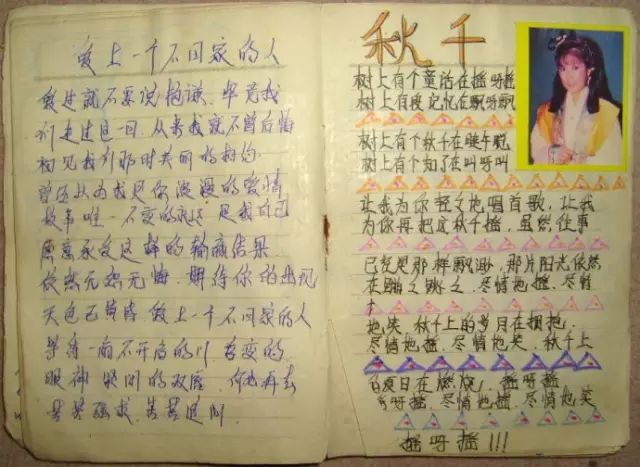 爱上一个不回家的人
爱过就不要说抱谦 毕竟我
们走过这一回 从来我就不曾后悔
初见我们那时美丽的相约
曾经以为我是你浪漫的爱情
故事唯一不变的永远 是我自己
愿意承受这样的输赢结果
依然无怨无悔 期待你的出现
天色已黄昏 爱上一个不回家的人
等待一扇不开启的门 善变的
眼神 紧闭的双唇 何必再去
苦苦强求 苦苦追问
秋千
树上有个童话在摇呀摇
树上有段记忆在飘呀飘
树上有个秋千在睡午觉
树上有个知了在叫呀叫
让我为你轻之地唱首歌,让我
为你再把这秋千摇,虽然往事
已是那样飘渺,那片阳光依然
在跳之,尽情地摇.尽情
地笑.秋千上的岁月在拥抱.
尽情地摇.尽情地笑.秋千上
夏日在燃烧.摇呀摇
呀摇.尽情地摇.尽情地笑
摇呀摇!!!